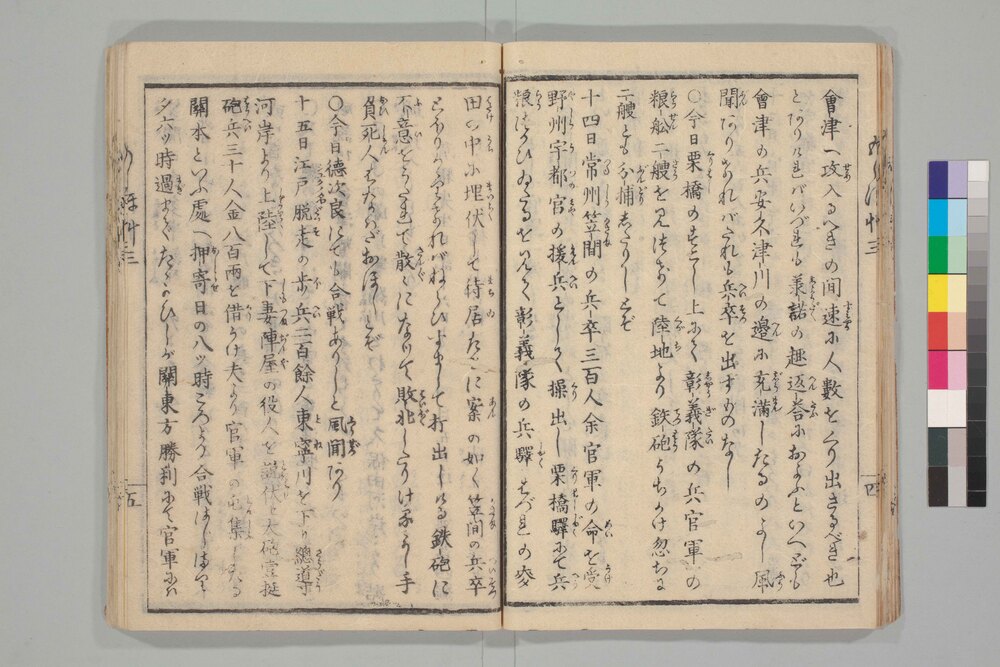 會津へ攻入るべきの间速に人數をくり出さるべき也
となり けれバいづれも羕諾の趣返答におよぶといへども
會津の兵安不津川の邊に充滿したるのよし風
聞ありければたれも兵卒を出すものなし
〇今日栗橋の すこし上にて彰義隊の兵官軍の
粮舩二艘を見つけて陸地より鉄砲うちかけ忽ちに
二艘とも分捕したりしとぞ
十四日常州笠間の兵卒三百人余官軍の命を受
野州宇都宮の援兵として操出し栗橋驛にて兵
粮つかひゐるをきく彰義隊の兵驛はづれの麥
田の中に埋伏して待居たるに案の如く笠間の兵卒
とほりかゝりければねらひすまして打出しける鉄砲に
不意をうたれて散〻になりて敗北したりけるよし手
負死人もたくさんおほしとぞ
〇今日德次良にても合戰ありしと風聞あり
十五日江戸脱走の歩兵二百餘人東寧川を下り總導寺
河岸より上陸して下妻陣屋の役人を 大砲壹挺
砲兵三十人金八百両を借うけ夫より官軍の屯集したる
關本といふ處へ押寄日の八ッ時ころより合戰はじまりて
夕六ッ時過までたゝかひしが關東方勝利にて官軍
四
五